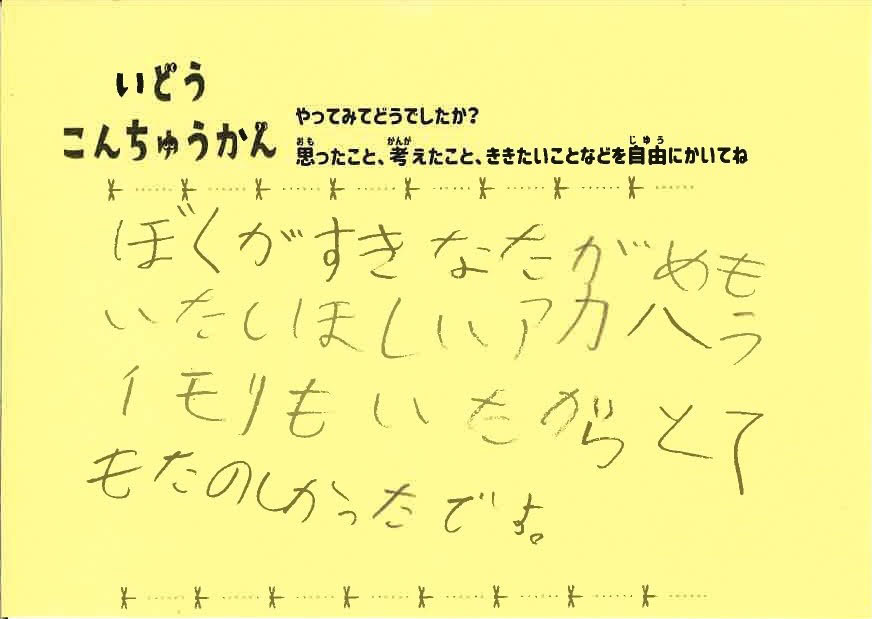 いどう
こんちゅうかん
やってみてどうでしたか?
思ったこと、考えたこと、ききたいことなどを自由にかいてね
ぼくがすきなたがめも
いたしほしいアカハラ
イモリもいたがらとて
もたのしかったです。